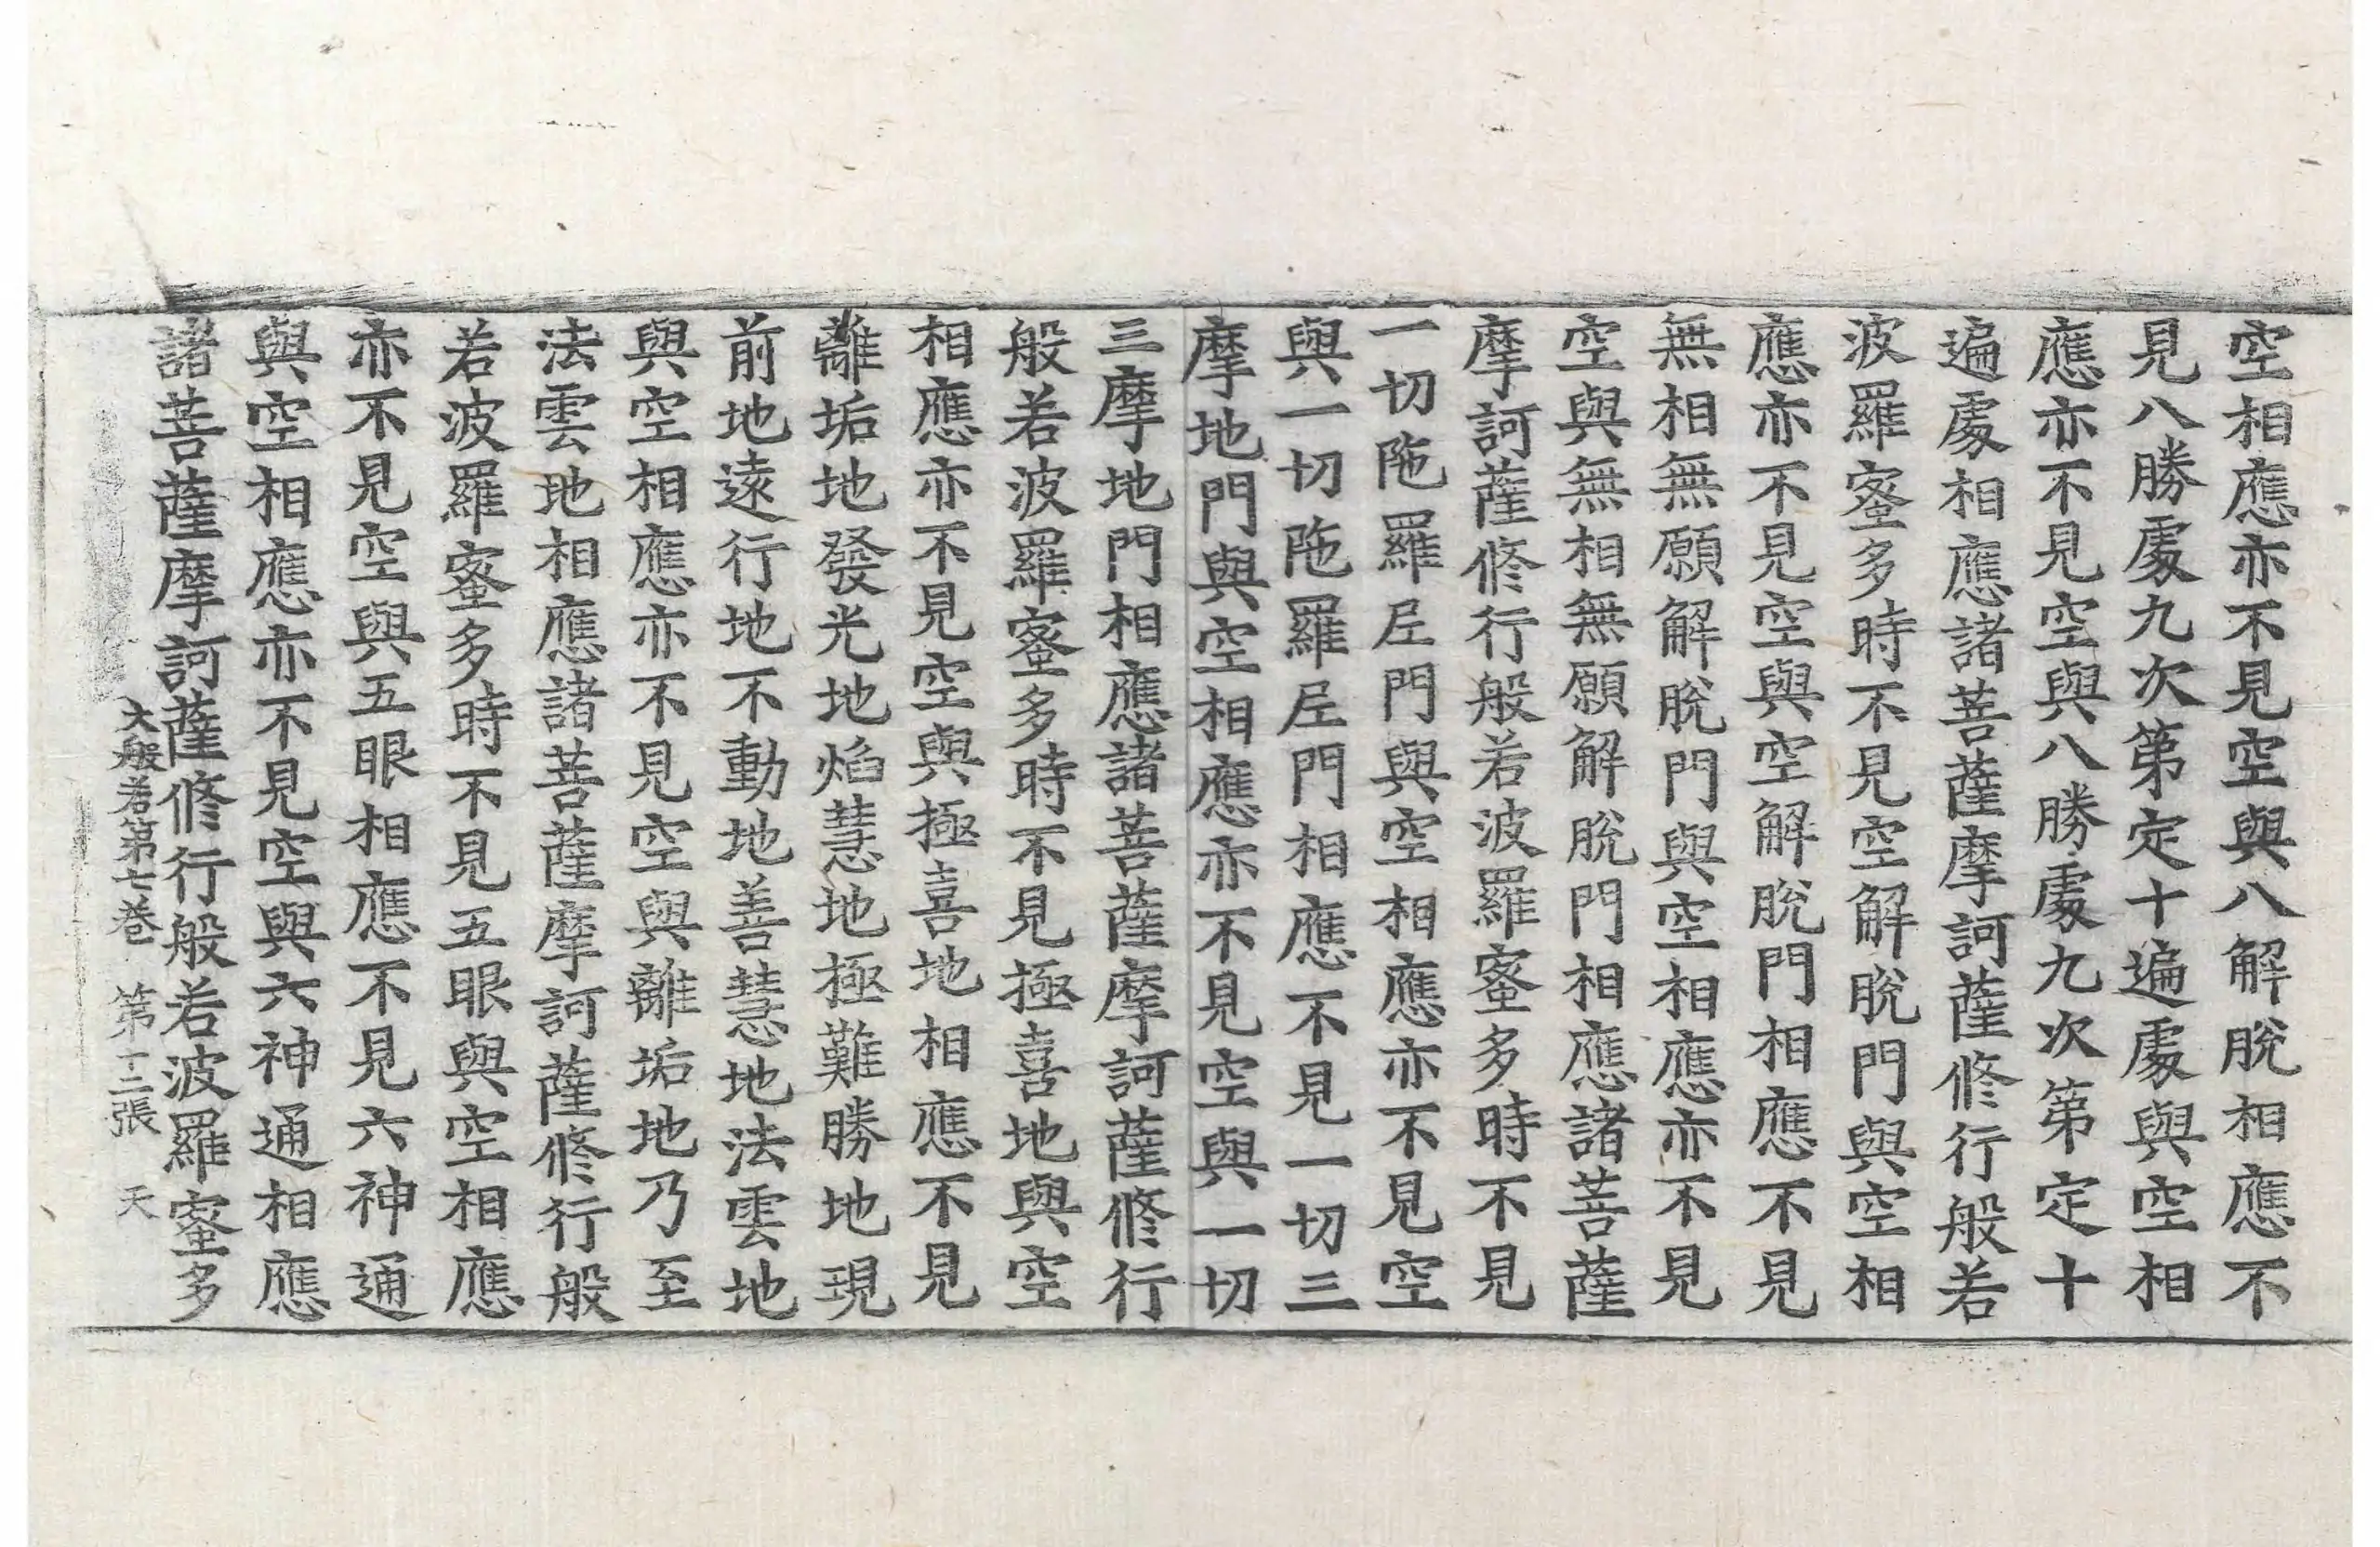 空相應亦不見空與八解脫相應不
見八勝處九次第定十遍處與空相
應亦不見空與八勝處九次第定十
遍處相應諸菩薩摩訶薩修行般若
波羅蜜多時不見空解脫門與空相
應亦不見空與空解脫門相應不見
無相無願解脫門與空相應亦不見
空與無相無願解脫門相應諸菩薩
摩訶薩修行般若波羅蜜多時不見
一切陁羅尼門與空相應亦不見空
與一切陁羅尼門相應不見一切三
摩地門與空相應亦不見空與一切
三摩地門相應諸菩薩摩訶薩修行
般若波羅蜜多時不見極喜地與空
相應亦不見空與極喜地相應不見
離垢地發光地焰慧地極難勝地現
前地遠行地不動地善慧地法雲地
與空相應亦不見空與離垢地乃至
法雲地相應諸菩薩摩訶薩修行般
若波羅蜜多時不見五眼與空相應
亦不見空與五眼相應不見六神通
與空相應亦不見空與六神通相應
諸菩薩摩訶薩修行般若波羅蜜多
大般若第七卷 第十二張 天